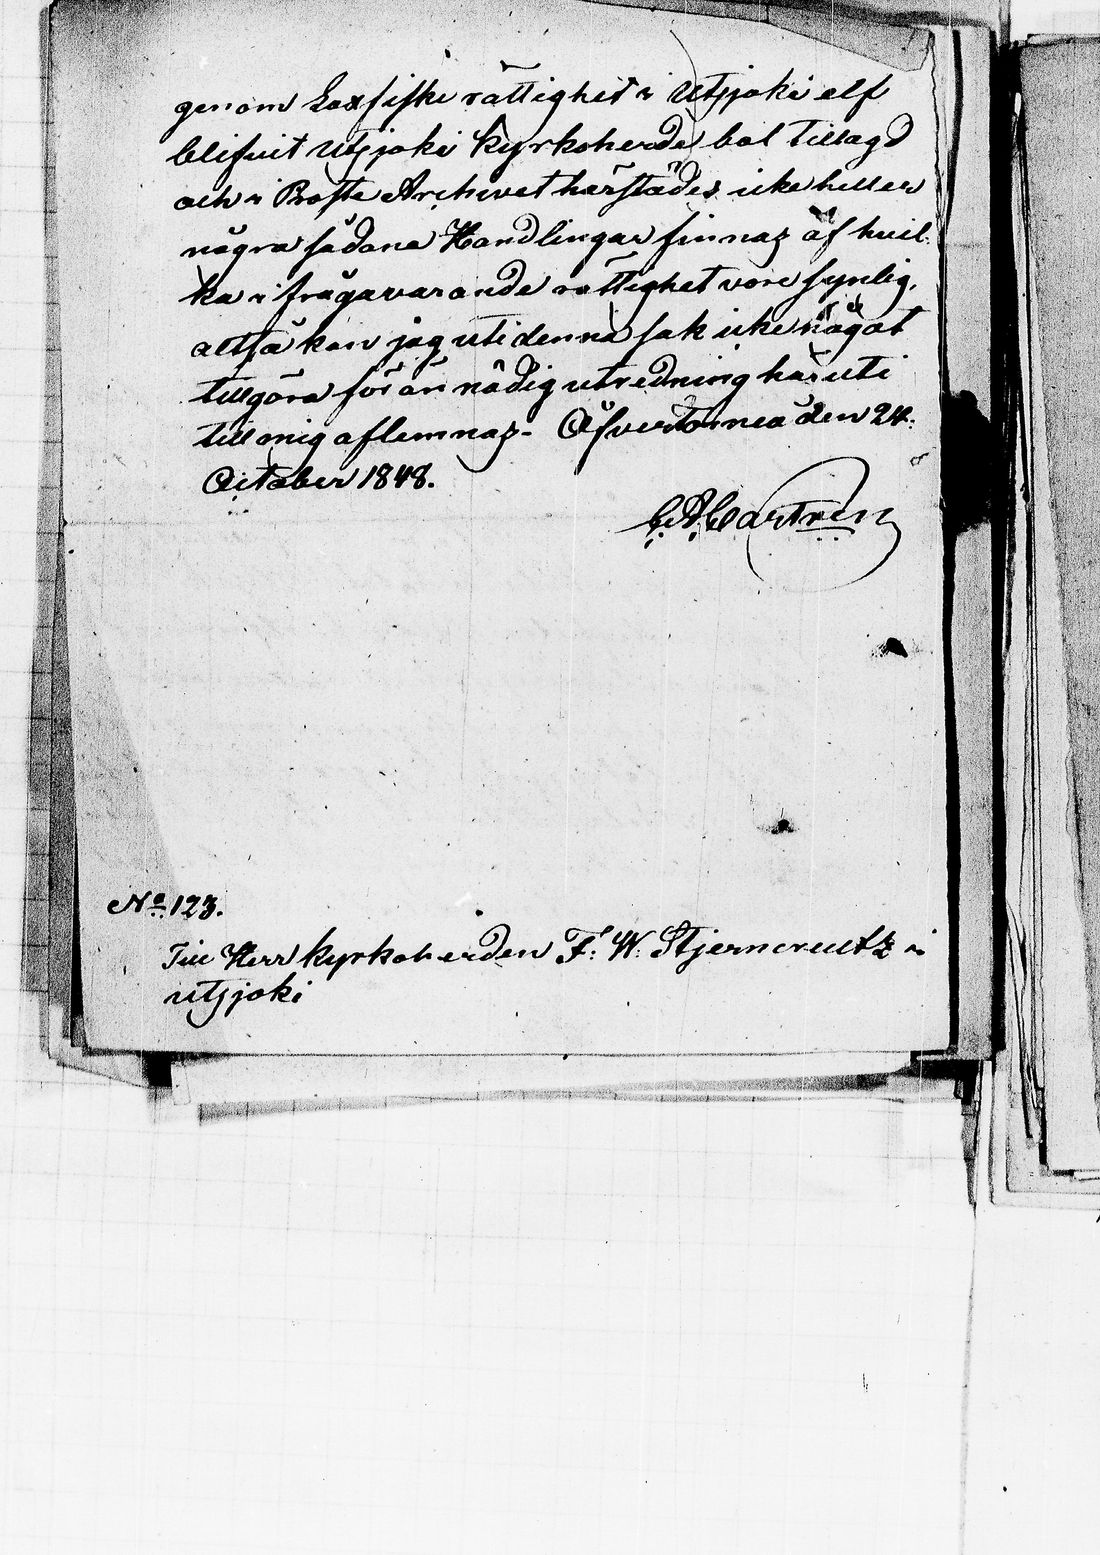 genom Laxfiske rättighet i Utsjoki elf
blifvit Utsjoki Kyrkoherde bol tillagd
och i Proste Archivet härstädes icke heller
några sådana Handlingar finnas af hvil-
ka ifrågavarande rättighet vore synlig,
altså kan jag uti denna sak icke något
tillgöra för än nödig utredning häruti
till mig aflemnas. Öfvertorneå den 24.
October 1848.
C. A. Castrén
No 123.
Till Herr Kyrkoherden F. W. Stjerncreutz i
Utsjoki